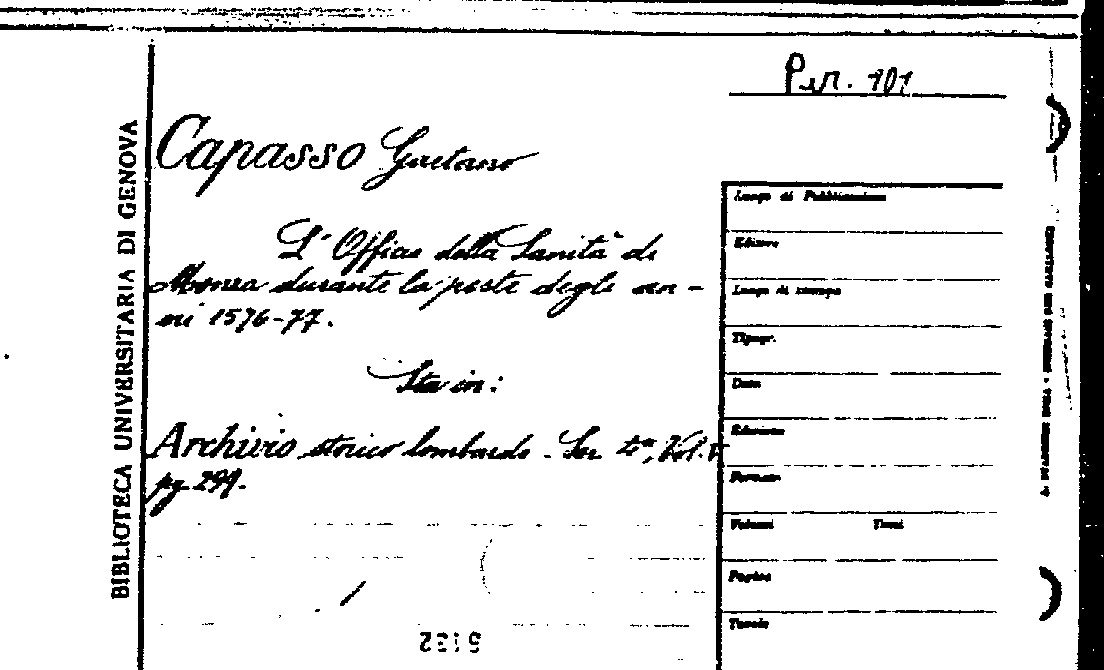 Per. 101
BIBLIOTECA UNIVERSITARIA DI GENOVA
Capasso Gaetano
L'Officio della Sanità di
Monza durante la peste degli an-
ni 1576-77.
Sta in:
Archivio storico lombardo. Ser 4ª, Vol. V
pg 299.
Luogo di Pubblicazione
Editore
Luogo di stampa
Tipogr.
Data
Edizione
Formato
Volumi Tomi
Pagine
Tavole
5132